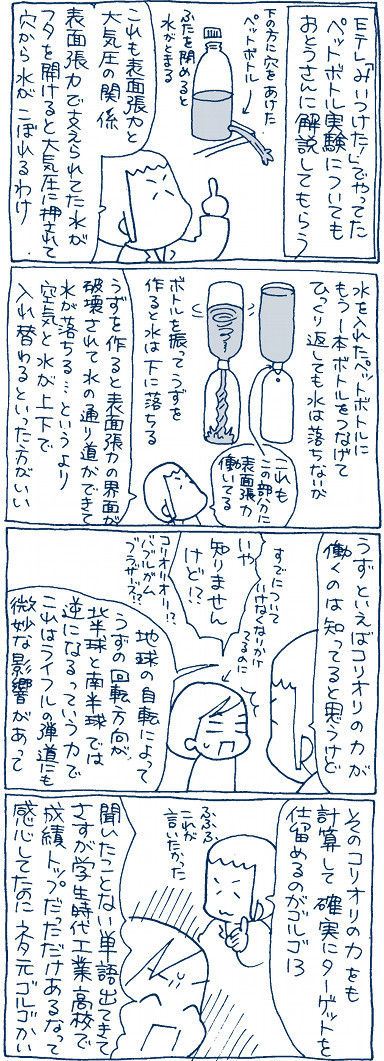 Eテレ「みいつけた!」でやってた
ペットボトル実験についても
おとうさんに解説してもらう
下の方に穴をあけた
ペットボトル
ふたを閉めると
水がとまる
これも表面張力と
大気圧の関係
表面張力で支えられてた水が
フタを開けると大気圧に押されて
穴から水がこぼれるわけ
水を入れたペットボトルに
もう一本ボトルをつなげて
ひっくり返しても水は落ちないが
ボトルを振ってうずを
作ると水は下に落ちる
これも
この部分に
表面張力
働いてる
うずを作ると表面張力の界面が
破壊されて水の通り道ができて
水が落ちる…というより
空気と水が上下で
入れ替わるといった方がいい
うずといえばコリオリの力が
働くのは知ってると思うけど
すでについて
いけなくなりかけ
てるのに
いや
知りません
けど!?
コリオリオリ!?
バブルガム
ブラザーズ!?
地球の自転によって
うずの回転方向が
北半球と南半球では
逆になるっていう力で
これはライフルの弾道にも
微妙な影響があって
そのコリオリの力をも
計算して確実にターゲットを
仕留めるのがゴルゴ13
ふふふ、
これが
言いたかった
聞いたことない単語出てきて
さすが学生時代工業高校で
成績トップだっただけあるなって
感心してたのにネタ元ゴルゴかい